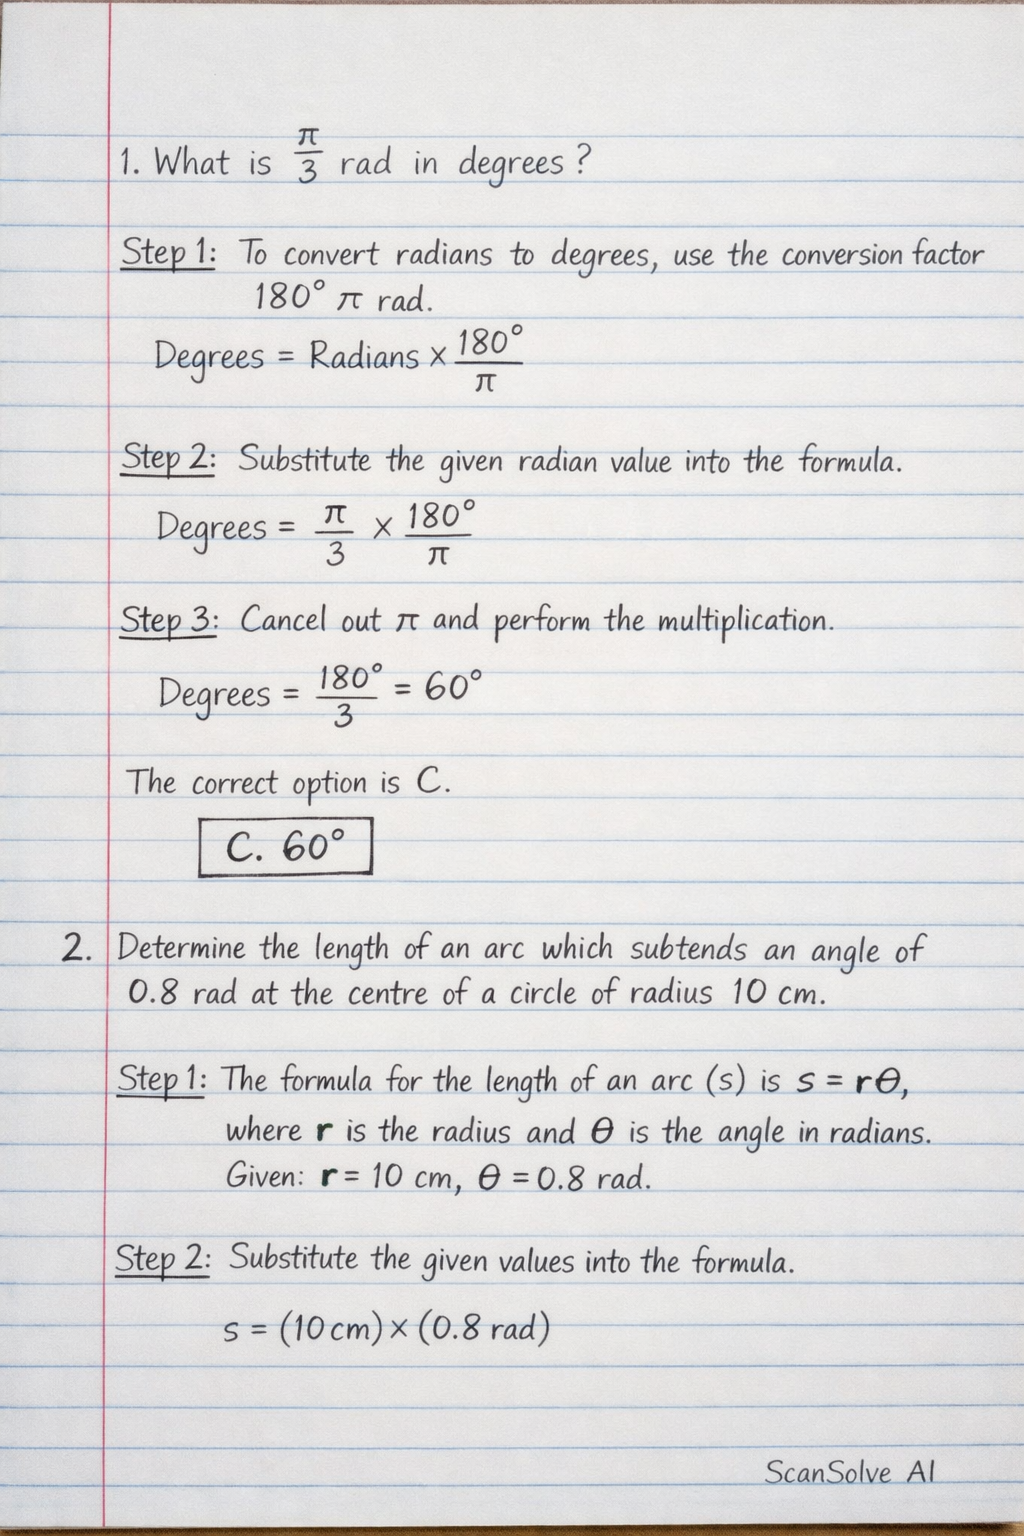 1. What is π/3 rad in degrees?
Step 1: To convert radians to degrees, use the conversion factor
180° π rad.
Degrees = Radians × 180°/π
Step 2: Substitute the given radian value into the formula.
Degrees = π/3 × 180°/π
Step 3: Cancel out π and perform the multiplication.
Degrees = 180°/3 = 60°
The correct option is C.
C. 60°
2. Determine the length of an arc which subtends an angle of
0.8 rad at the centre of a circle of radius 10 cm.
Step 1: The formula for the length of an arc (s) is s = rθ,
where r is the radius and θ is the angle in radians.
Given: r = 10 cm, θ = 0.8 rad.
Step 2: Substitute the given values into the formula.
s = (10 cm) × (0.8 rad)
ScanSolve AI